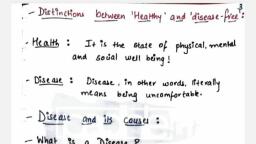 - Distinctions between 'Healthy' and 'disease-free':
- Health : It is the state of physical, mental
and social well being!
- Disease : Disease, in other words, literally
means being uncomfortable.
- Disease and its causes :
- What is a Disease?